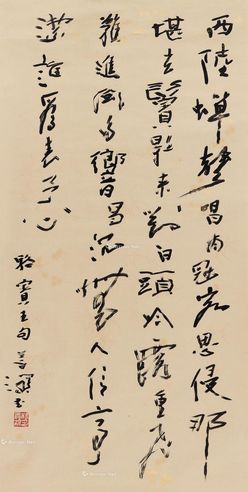 西陸蟬聲唱南冠客思侵那
堪玄鬢影来對白頭吟露重飛
難進風多響易沉無人信高
潔誰為表予心
駱賓王句